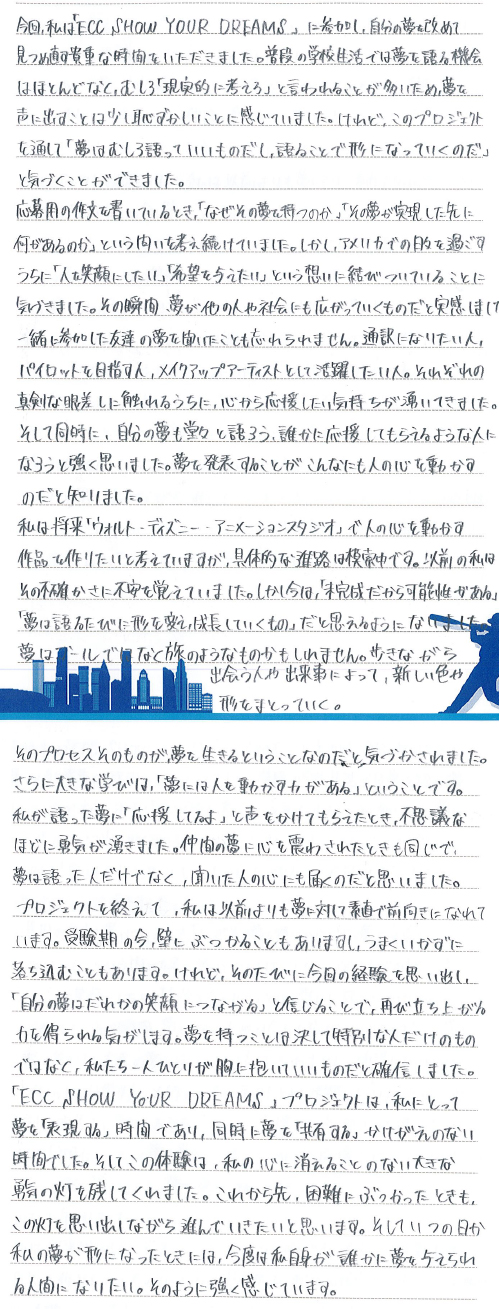 今回、私は「ECC SHOW YOUR DREAMS」に参加し、自分の夢を改めて
見つめ直す貴重な時間をいただきました。普段の学校生活では夢を語る機会
はほとんどなく、むしろ「現実的に考えろ」と言われることが多いため、夢を
声に出すことは少し恥ずかしいことに感じていました。けれど、このプロジェクト
を通して「夢はむしろ語っていいものだし、語ることで形になっていくのだ」
と気づくことができました。
応募用の作文を書いているとき、「なぜその夢を持つのか」「その夢が実現した先に
何があるのか」という問いを考え続けていました。しかし、アメリカでの日々を過ごす
うちに「人を笑顔にしたい」「希望を与えたい」という想いに結びついていることに
気づきました。その瞬間、夢が他の人や社会にも広がっていくものだと実感しました
一緒に参加した友達の夢を聞いたことも忘れられません。通訳になりたい人、
パイロットを目指す人、メイクアップアーティストとして活躍したい人。それぞれの
真剣な眼差しに触れるうちに、心から応援したい気持ちが湧いてきました。
そして同時に、自分の夢も堂々と語ろう、誰かに応援してもらえるような人に
なろうと強く思いました。夢を発表することがこんなにも人の心を動かす
のだと知りました。
私は将来「ウォルト・ディズニー・アニメーションスタジオ」で人の心を動かす
作品を作りたいと考えていますが、具体的な進路は模索中です。以前の私は
その不確かさに不安を覚えていました。しかし今は、「未完成だから可能性がある」
「夢は語るたびに形を変え、成長していくもの」だと思えるようになりました。
夢はゴールではなく旅のようなものかもしれません。歩きながら
出会う人や出来事によって、新しい色や
形をまとっていく。
そのプロセスそのものが、夢を生きるということなのだと気づかされました。
さらに大きな学びは、「夢には人を動かす力がある」ということです。
私が語った夢に「応援してるよ」と声をかけてもらえたとき、不思議な
ほどに勇気が湧きました。仲間の夢に心を震わされたときも同じで、
夢は語った人だけでなく、聞いた人の心にも届くのだと思いました。
プロジェクトを終えて、私は以前よりも夢に対して素直で前向きになれて
います。受験期の今、壁にぶつかることもありますし、うまくいかずに
落ち込むこともあります。けれど、そのたびに今回の経験を思い出し、
「自分の夢はだれかの笑顔につながる」と信じることで、再び立ち上がる
力を得られる気がします。夢を持つことは決して特別な人だけのもの
ではなく、私たち一人ひとりが胸に抱いていいものだと確信しました。
「ECC SHOW YOUR DREAMS」プロジェクトは、私にとって
夢を「表現する」時間であり、同時に夢を「共有する」かけがえのない
時間でした。そしてこの体験は、私の心に消えることのない大きな
勇気の灯を残してくれました。これから先、困難にぶつかったときも、
この灯を思い出しながら進んでいきたいと思います。そしていつの日か
私の夢が形になったときには、今度は私自身が誰かに夢を与えられ
る人間になりたい。そのように強く感じています。